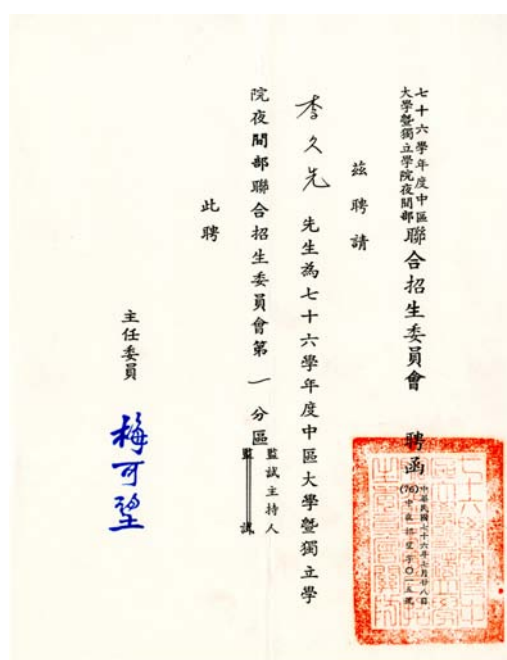 七十六學年度中區
大學暨獨立學院夜間部
聯合招生委員會 聘函
中華民國七十六年七月廿八日
(76)中夜招望字〇一五號
茲聘請
李久先 先生為七十六學年度中區大學暨獨立學
院夜間部聯合招生委員會第一分區
監試主持人
監試
此聘
主任委員
梅可望